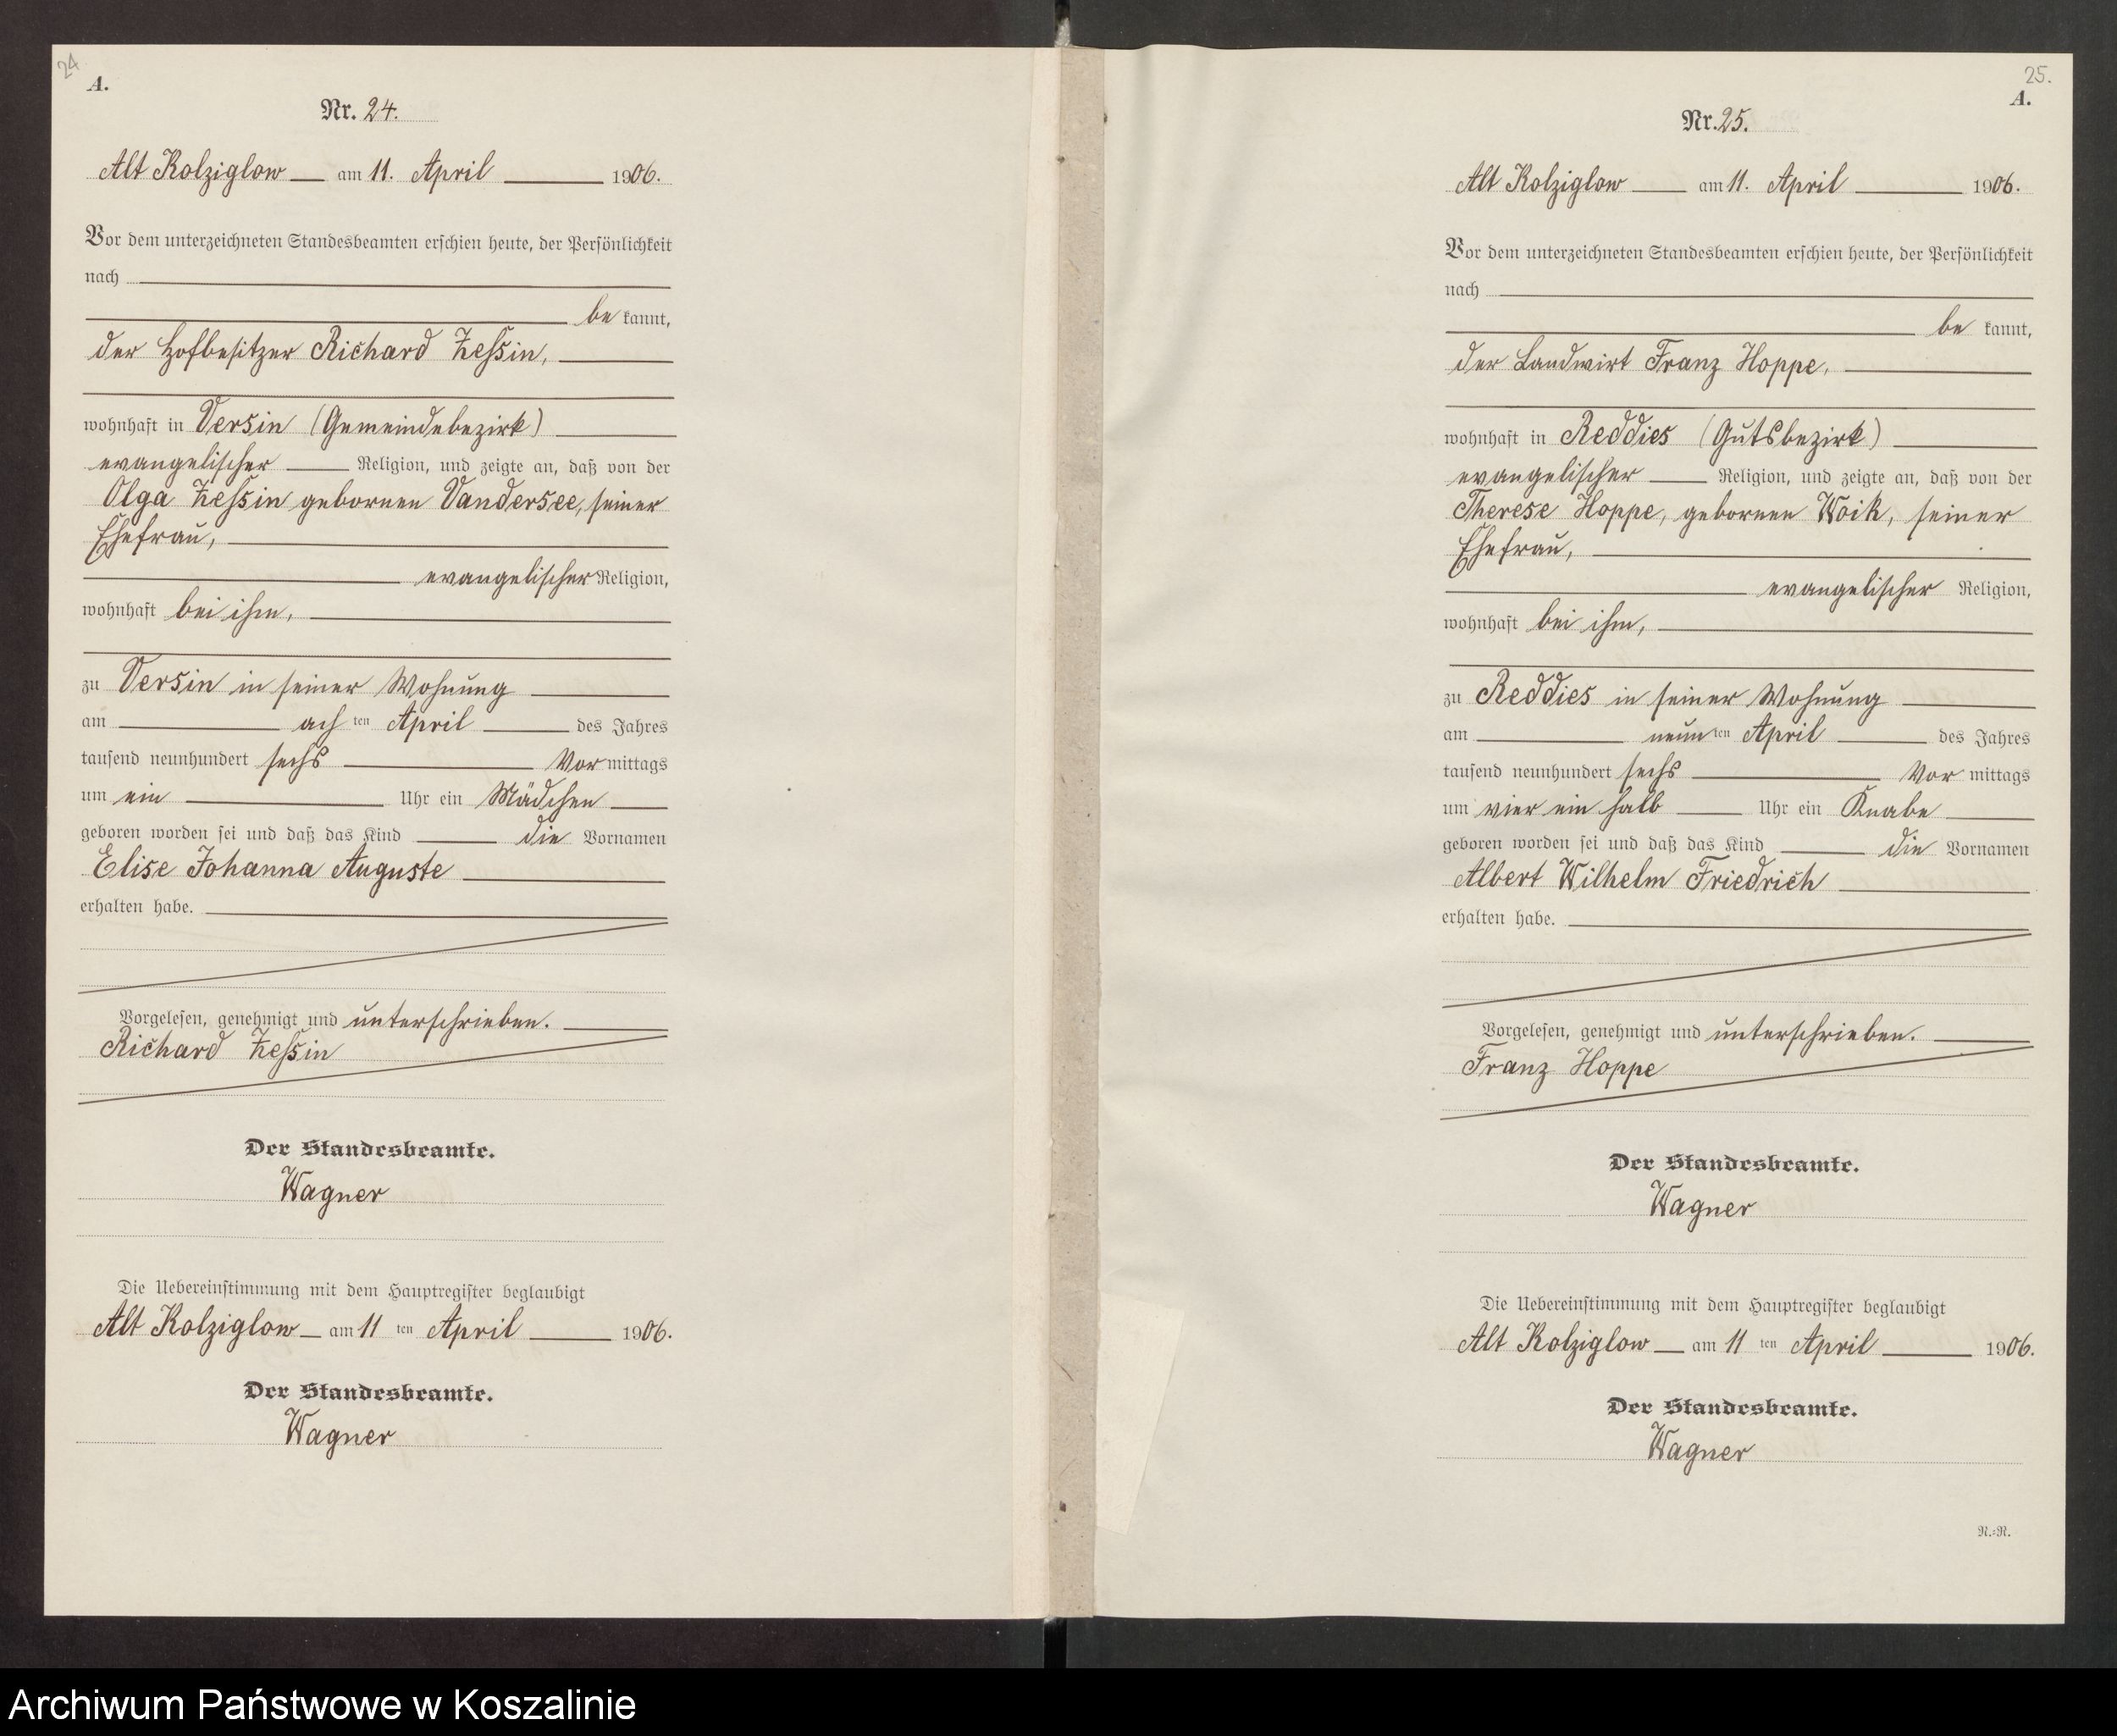 24
A.
Nr. 24.
Alt Kolziglow am 11. April 1906.
Vor dem unterzeichneten Standesbeamten erschien heute, der Persönlichkeit
nach
be kannt,
der Hofbesitzer Richard Zessin,
wohnhaft in Versin (Gemeindebezirk)
evangelischer Religion, und zeigte an, daß von der
Olga Zessin gebornen Vandersee, seiner
Ehefrau,
evangelischer Religion,
wohnhaft bei ihm,
zu Versin in seiner Wohnung
am ach ten April des Jahres
tausend neunhundert sechs Vor mittags
um ein Uhr ein Mädchen
geboren worden sei und daß das Kind die Vornamen
Elise Johanna Auguste
erhalten habe.
Vorgelesen, genehmigt und unterschrieben.
Richard Zessin
Der Standesbeamte.
Wagner
Die Uebereinstimmung mit dem Hauptregister beglaubigt
Alt Kolziglow am 11 ten April 1906.
Der Standesbeamte.
Wagner
25.
A.
Nr. 25.
Alt Kolziglow am 11. April 1906.
Vor dem unterzeichneten Standesbeamten erschien heute, der Persönlichkeit
nach
be kannt,
der Landwirt Franz Hoppe,
wohnhaft in Reddies (Gutsbezirk)
evangelischer Religion, und zeigte an, daß von der
Therese Hoppe, gebornen Woik, seiner
Ehefrau,
evangelischer Religion,
wohnhaft bei ihm,
zu Reddies in seiner Wohnung
am neun ten April des Jahres
tausend neunhundert sechs Vor mittags
um vier ein halb Uhr ein Knabe
geboren worden sei und daß das Kind die Vornamen
Albert Wilhelm Friedrich
erhalten habe.
Vorgelesen, genehmigt und unterschrieben.
Franz Hoppe
Der Standesbeamte.
Wagner
Die Uebereinstimmung mit dem Hauptregister beglaubigt
Alt Kolziglow am 11 ten April 1906.
Der Standesbeamte.
Wagner
N.-R.
Archiwum Państwowe w Koszalinie